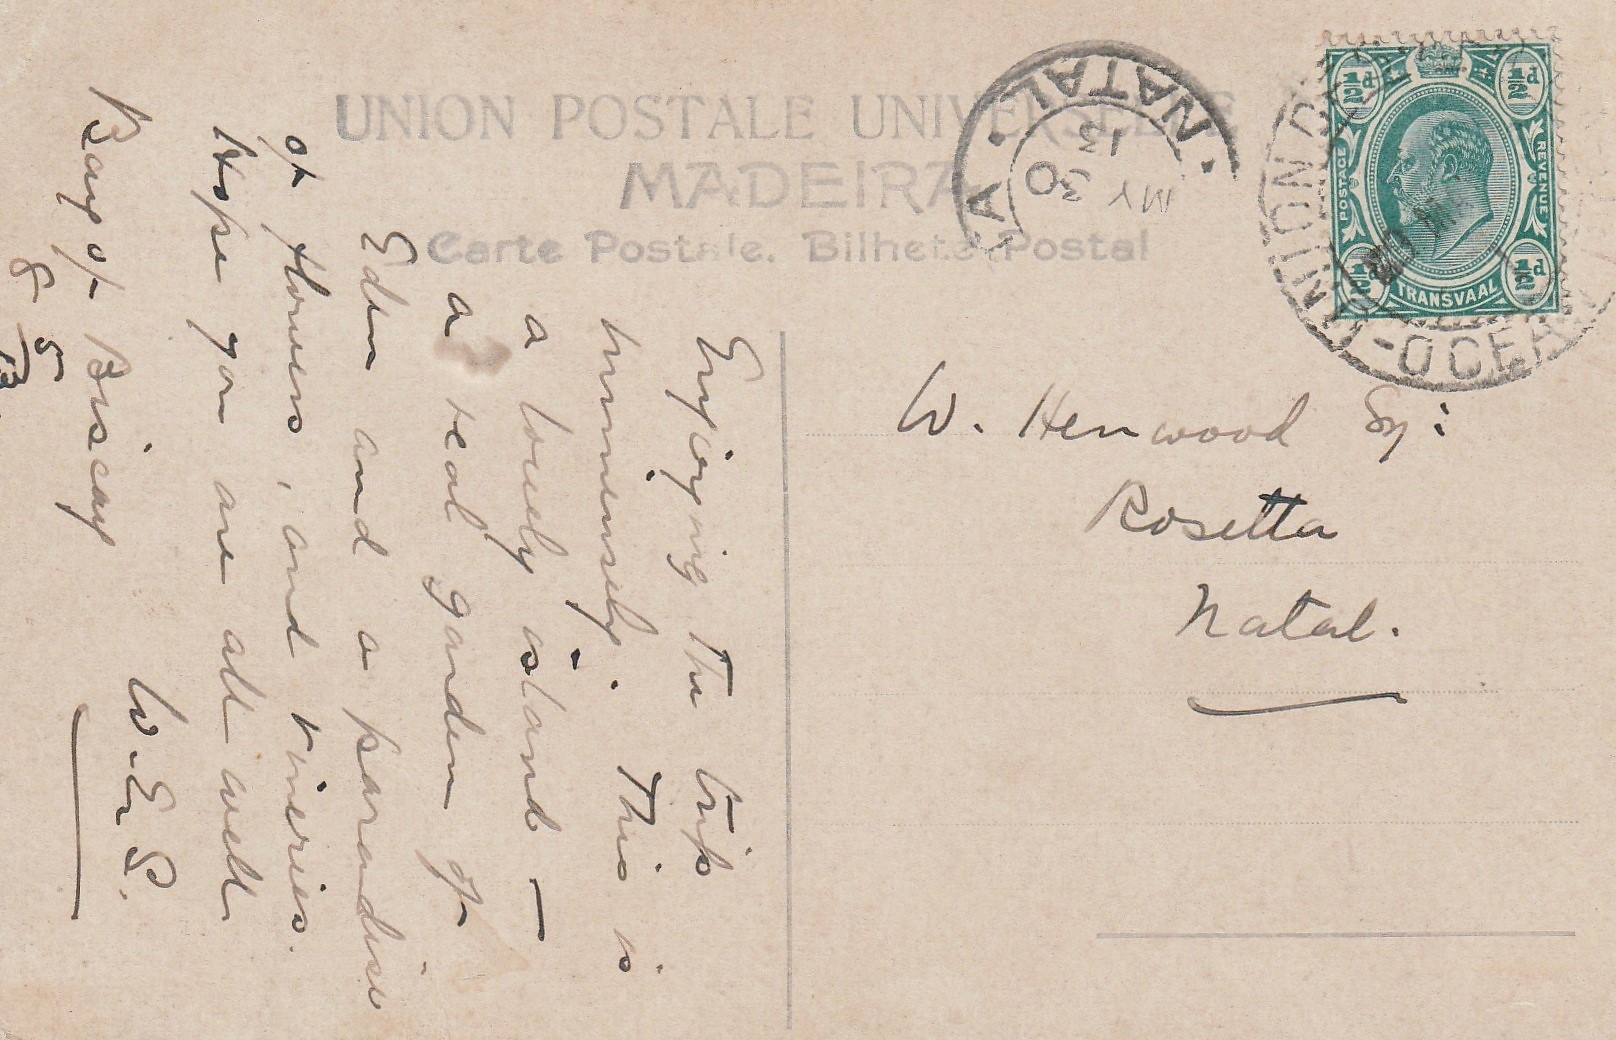 UNION POSTALE UNIVERSELLE
MADEIRA
Carte Postale. Bilhete Postal
NATAL
MY 30
13
A
½d ½d
POSTAGE
REVENUE
½d ½d
TRANSVAAL
UNION
OCEA
W. Henwood Esq:
Rosetta
Natal.
Enjoying the trip
immensely. This is
a lovely island —
a real garden of
Eden and a paradise
of flowers, and vineries.
Hope you are all well
W.E.S.
Bay of Biscay
8
5
13